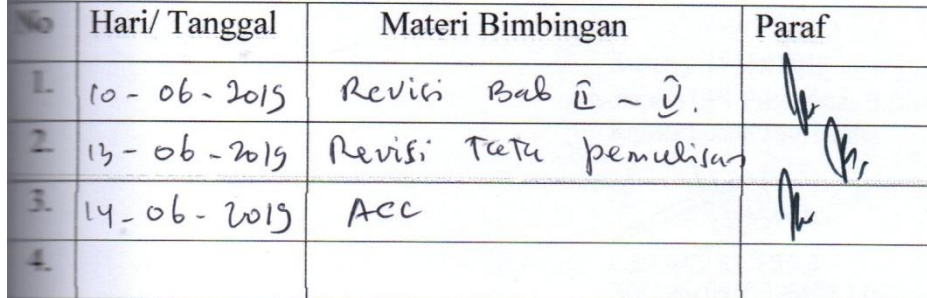 No Hari/ Tanggal Materi Bimbingan Paraf
1. 10-06-2019 Revisi Bab II ~ V.
2. 13-06-2019 Revisi Tata penulisan
3. 14-06-2019 ACC
4.